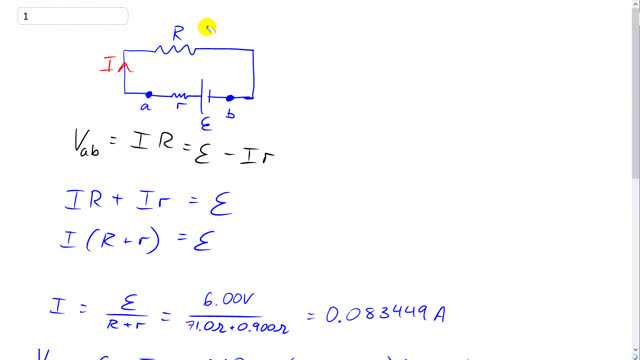 1
R
I
a r b
ε
V_ab = IR = ε - Ir
IR + Ir = ε
I(R+r) = ε
I = ε/(R+r) = 6.00V/(71.0Ω+0.900Ω) = 0.083449 A